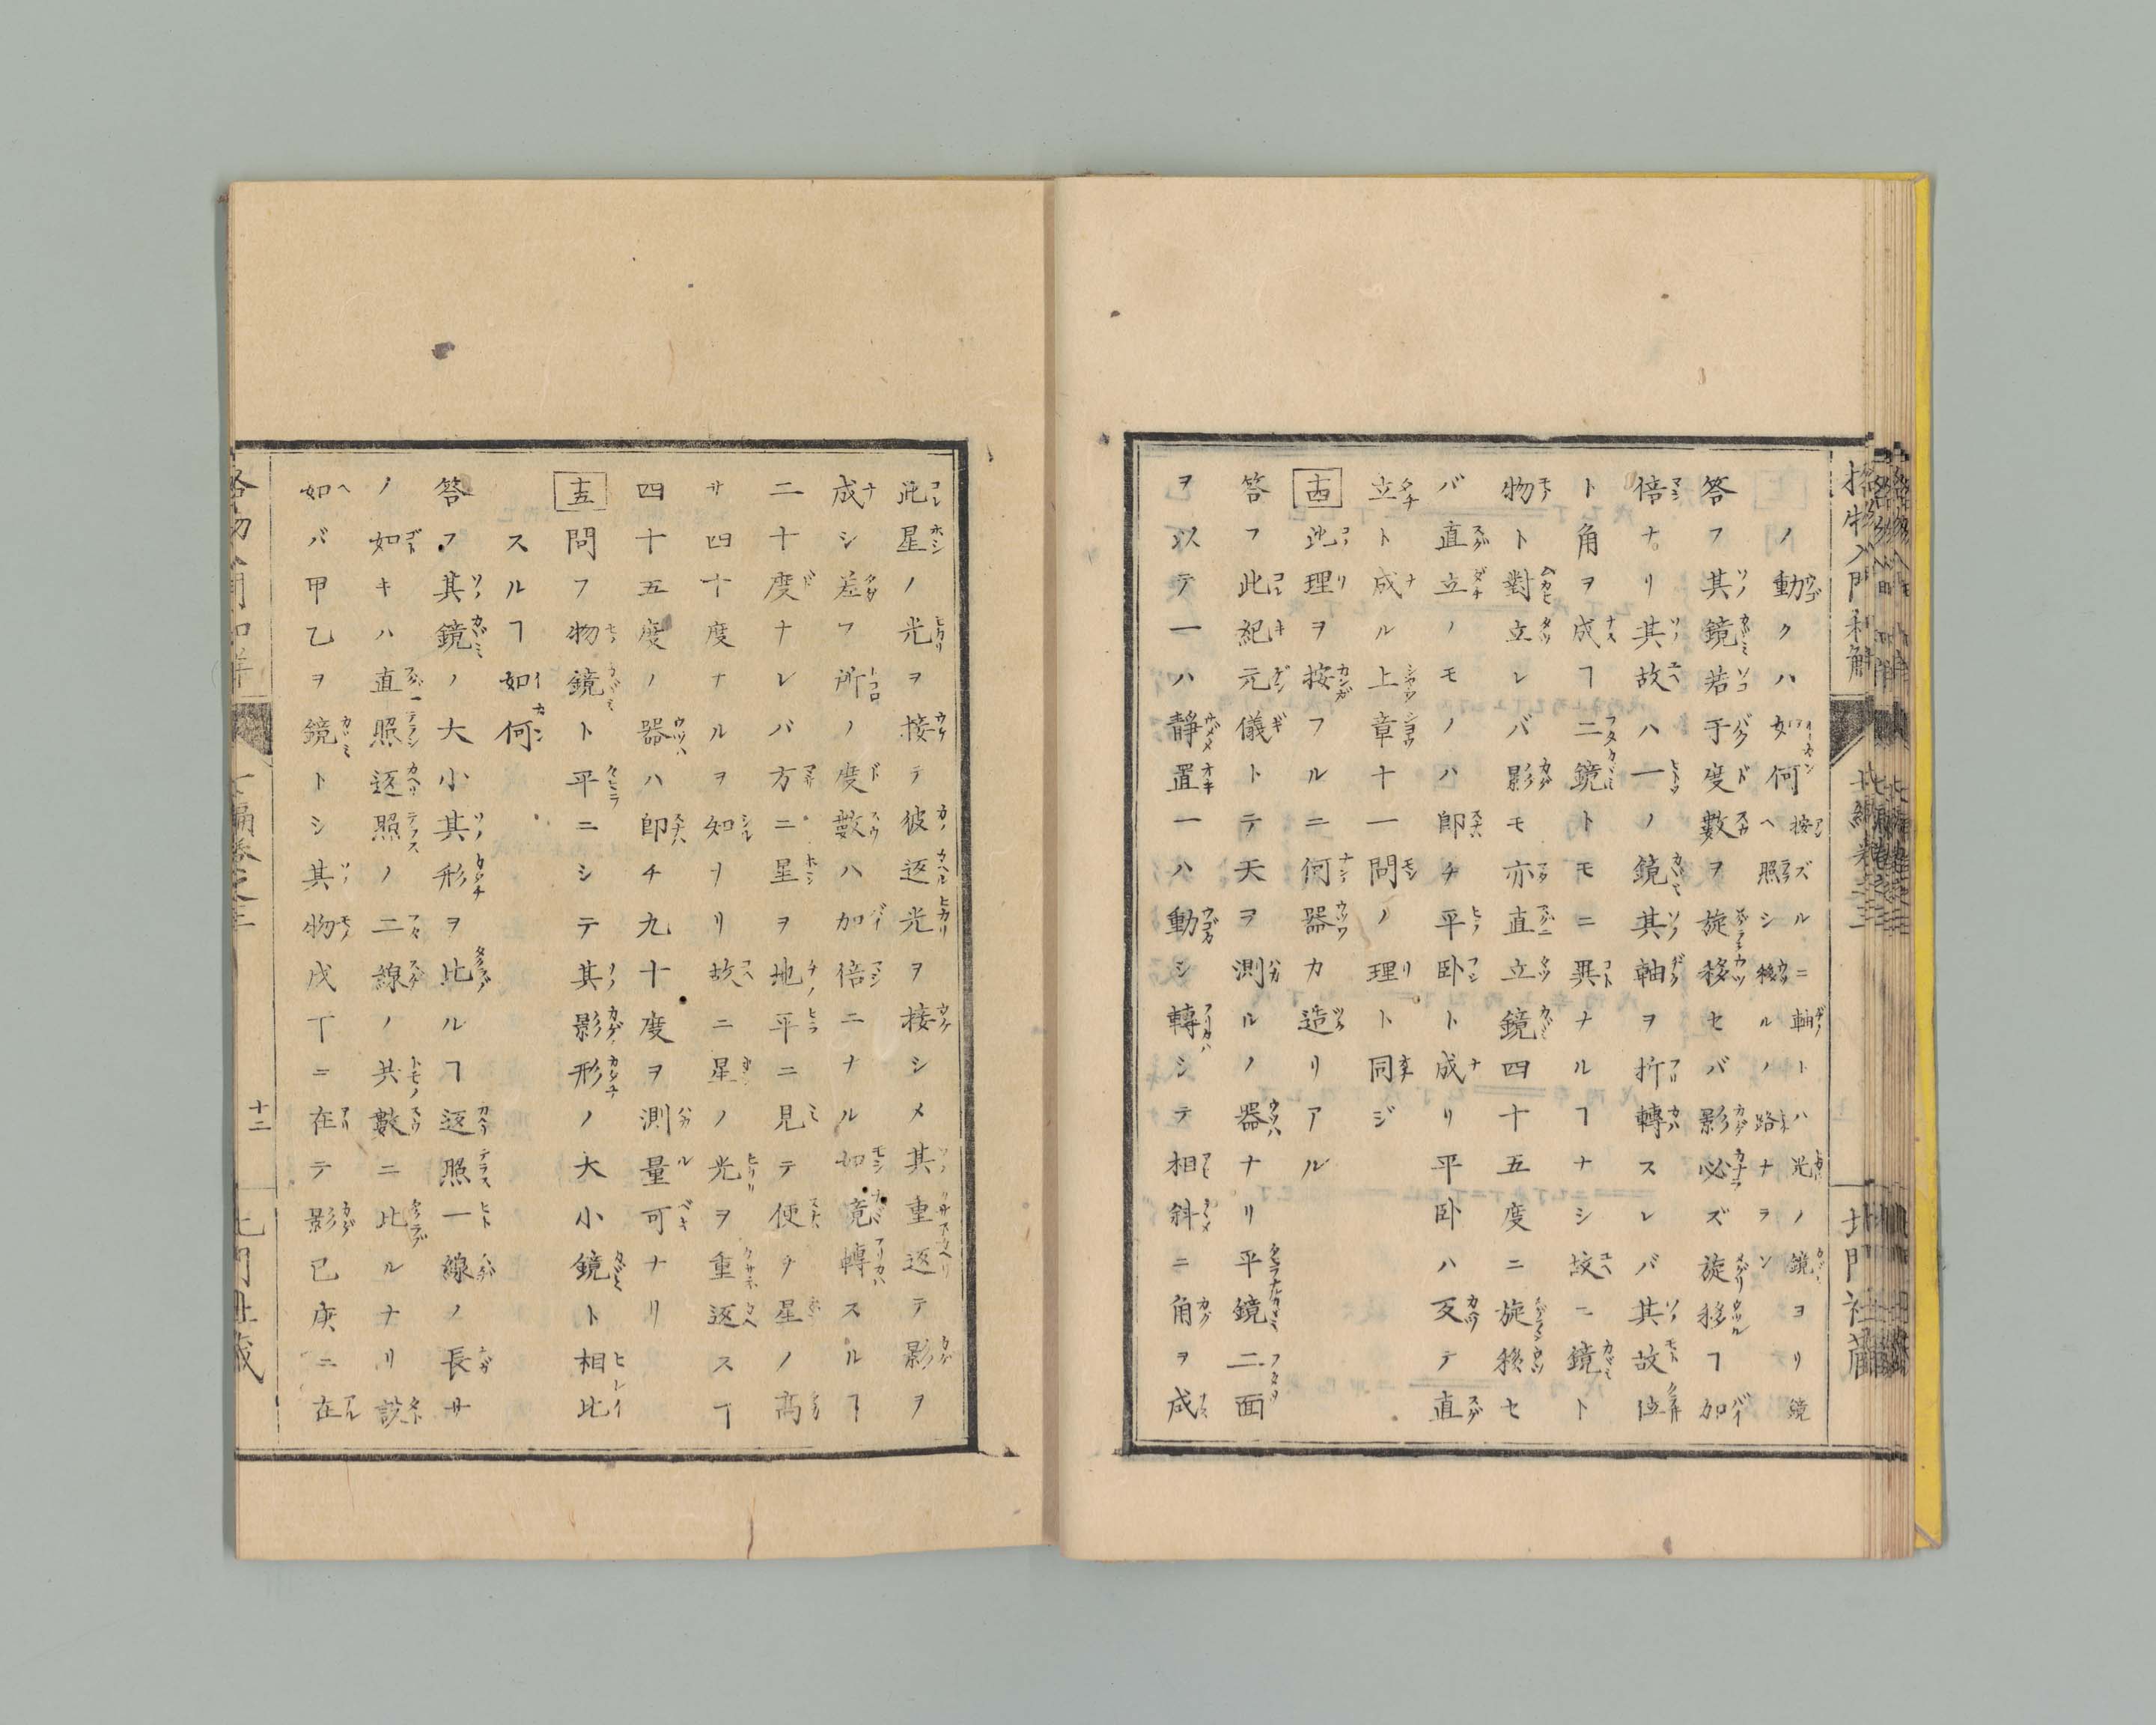 格物入門和解
北門社藏
ノ動クハ如何 按ズルニ軸トハ光ノ鏡ヨリ鏡ヘ照シ移ルノ路ナラン
答フ其鏡若干度數ヲ旋移セバ影必ズ旋移ヿ加
倍ナリ其故ハ一ノ鏡其軸ヲ折轉スレバ其故位
ト角ヲ成ヿ二鏡トモニ異ナルヿナシ故ニ鏡ト
物ト對立レバ影モ亦直立鏡四十五度ニ旋移セ
バ直立ノモノハ即チ平臥ト成リ平臥ハ反テ直
立ト成ル上章十一問ノ理ト同ジ
十四 此理ヲ按フルニ何器カ造リアル
答フ此紀元儀トテ天ヲ測ルノ器ナリ平鏡二面
ヲ以テ一ハ靜置一ハ動シ轉シテ相斜ニ角ヲ成
此星ノ光ヲ接テ彼返光ヲ接シメ其重返テ影ヲ
成シ差フ所ノ度數ハ加倍ニナル如竟轉スルヿ
二十度ナレバ方ニ星ヲ地平ニ見テ便チ星ノ高
サ四十度ナルヲ知ナリ故ニ星ノ光ヲ重返スヿ
四十五度ノ器ハ即チ九十度ヲ測量可ナリ
十五 問フ物鏡ト平ニシテ其影形ノ大小鏡ト相比
スルヿ如何
答フ其鏡ノ大小其形ヲ比ルヿ返照一線ノ長サ
ノ如キハ直照返照ノ二線ノ共數ニ比ルナリ設
如バ甲乙ヲ鏡トシ其物戊丁ニ在テ影已庚ニ在
十二